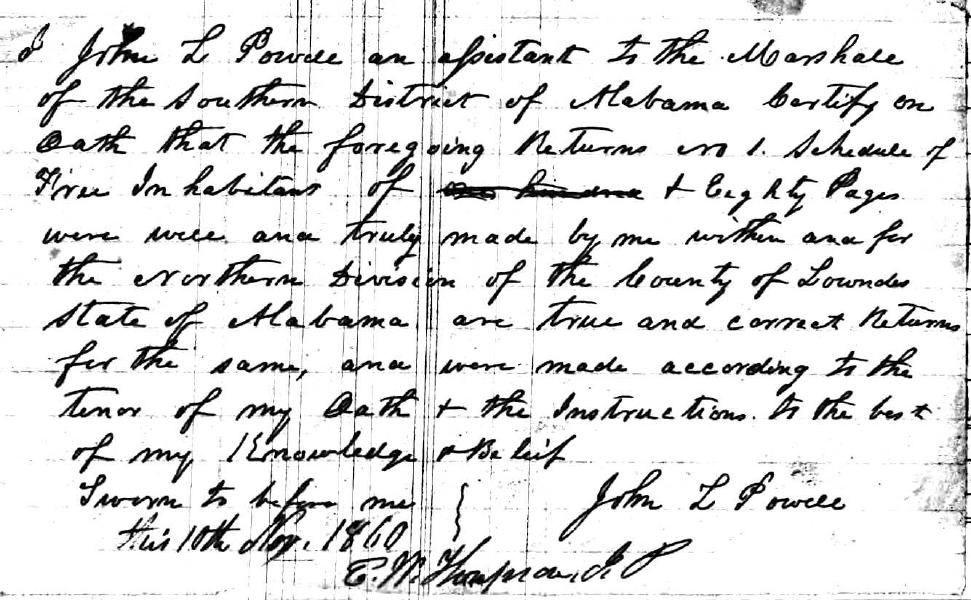 I John L Powell an assistant to the Marshall
of the Southern District of Alabama Certify on
Oath that the foregoing Returns No 1. Schedule of
Free Inhabitans of one hundred & Eighty Pages
were well and truly made by me within and for
the Northern Division of the County of Lowndes
State of Alabama are true and correct Returns
for the same, and were made according to the
tenor of my Oath & the Instructions. to the best
of my Knowledge & Belief
Sworn to before me } John L Powell
this 10th Nov. 1860
J P